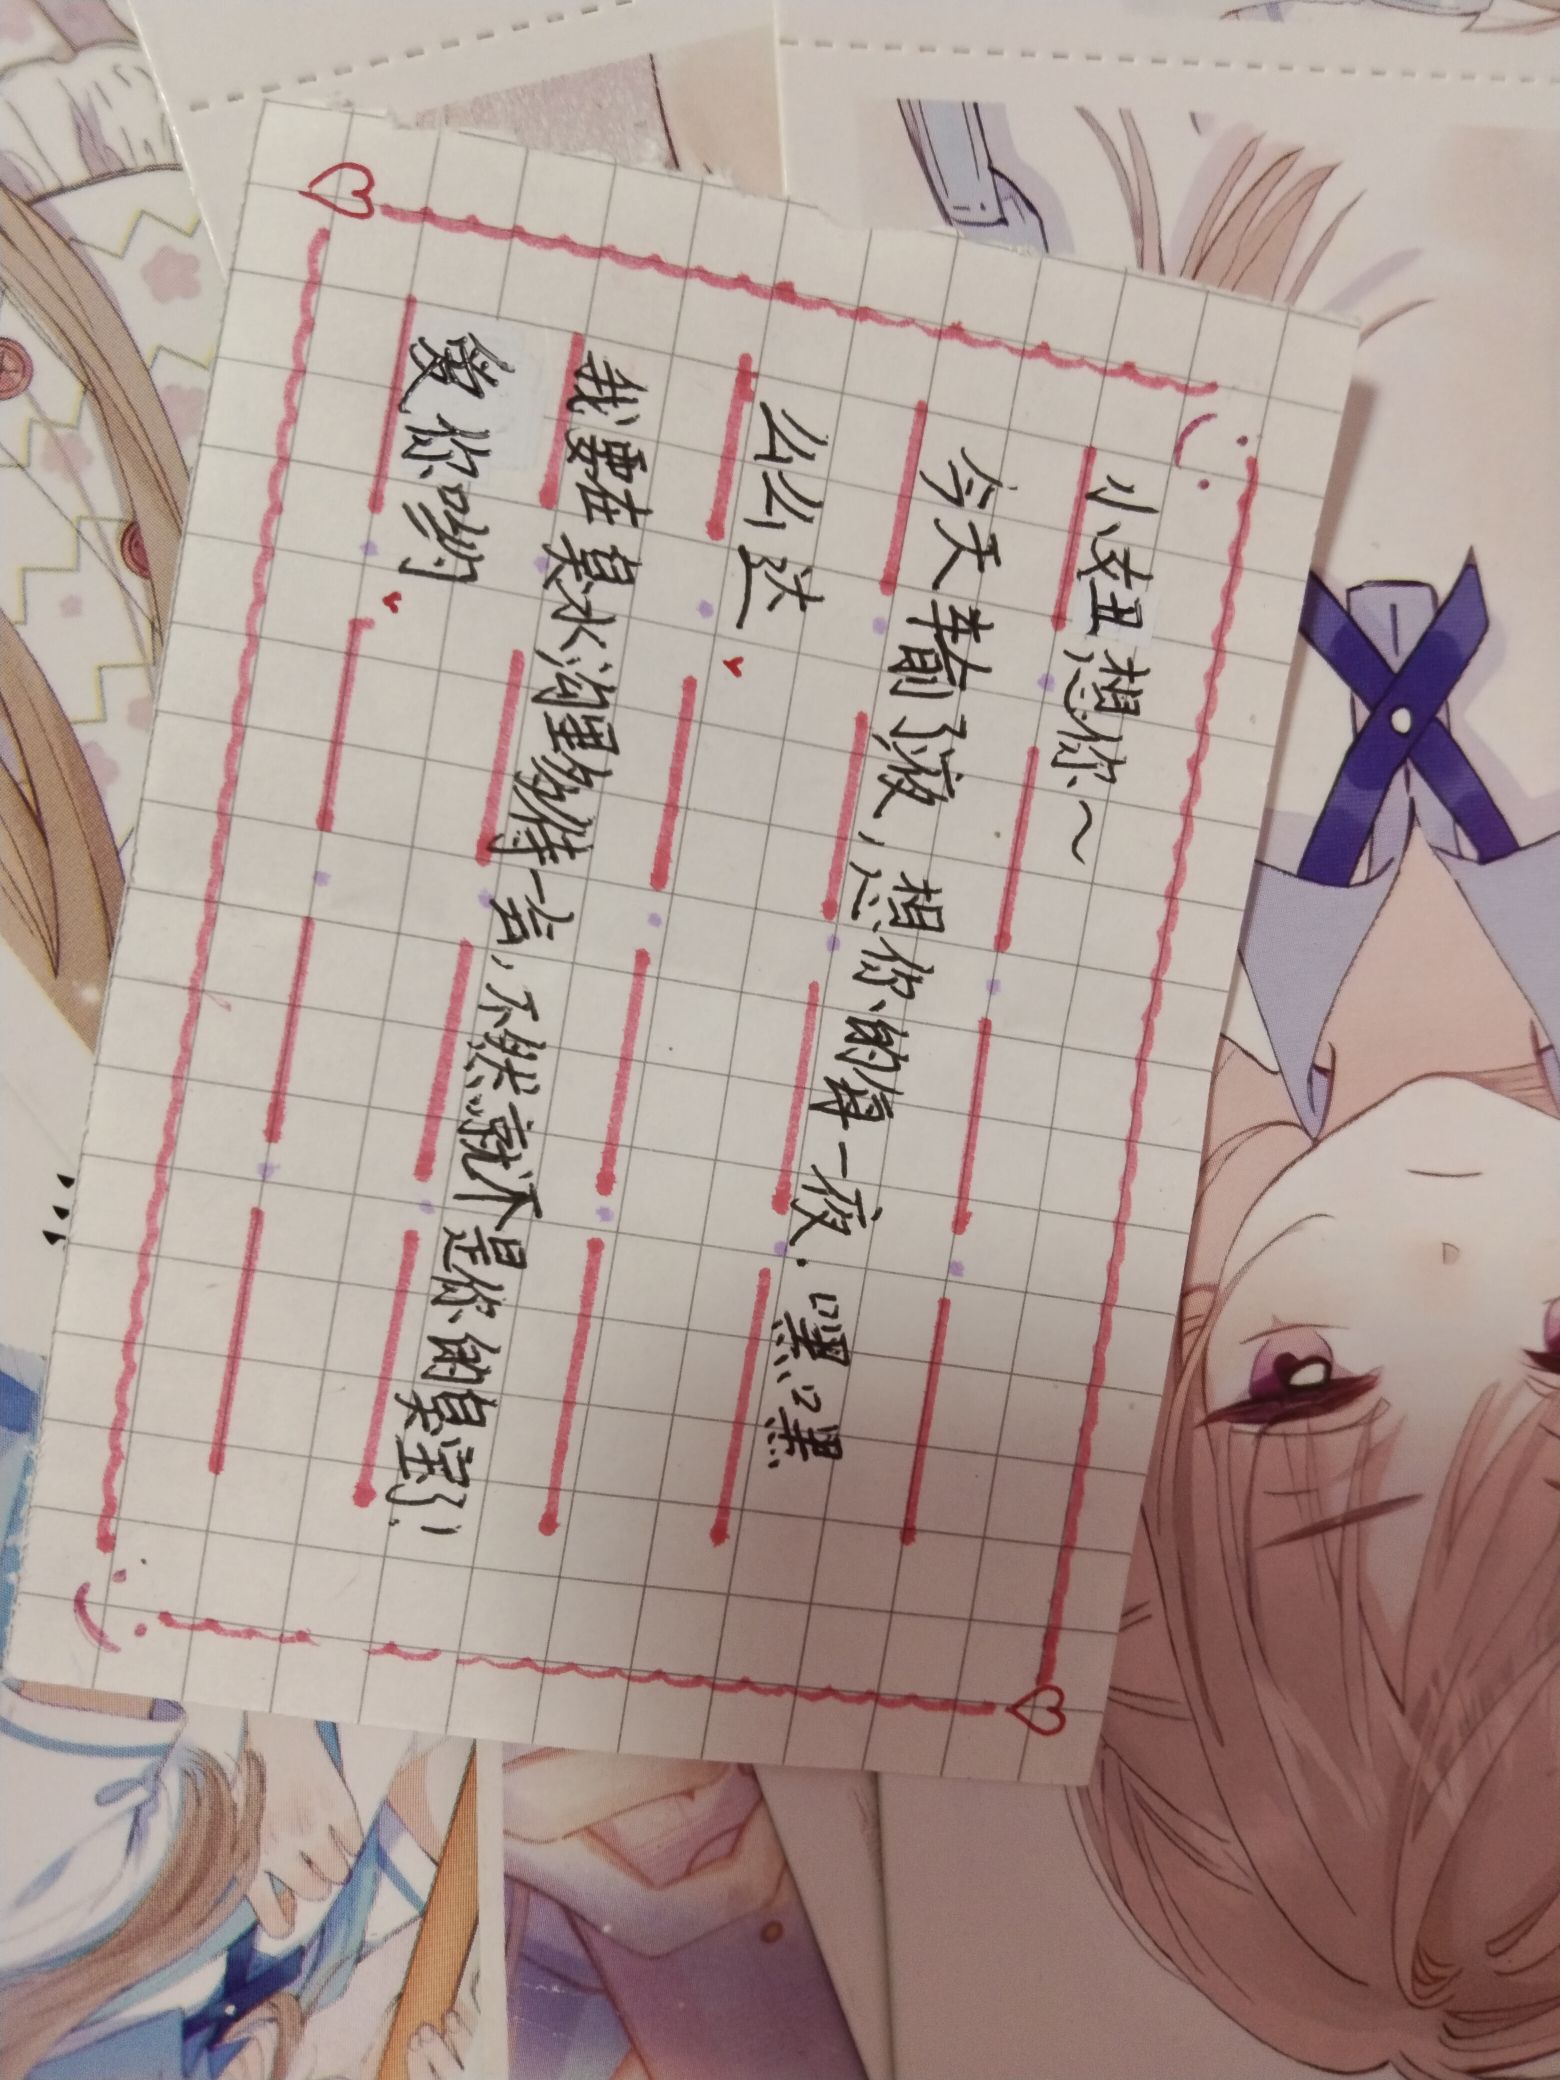 小妞想你～
今天输了液，想你的每一夜.嘿嘿
么么达
我要在臭水沟里多待一会,不然就不是你的臭宝了!
爱你哟